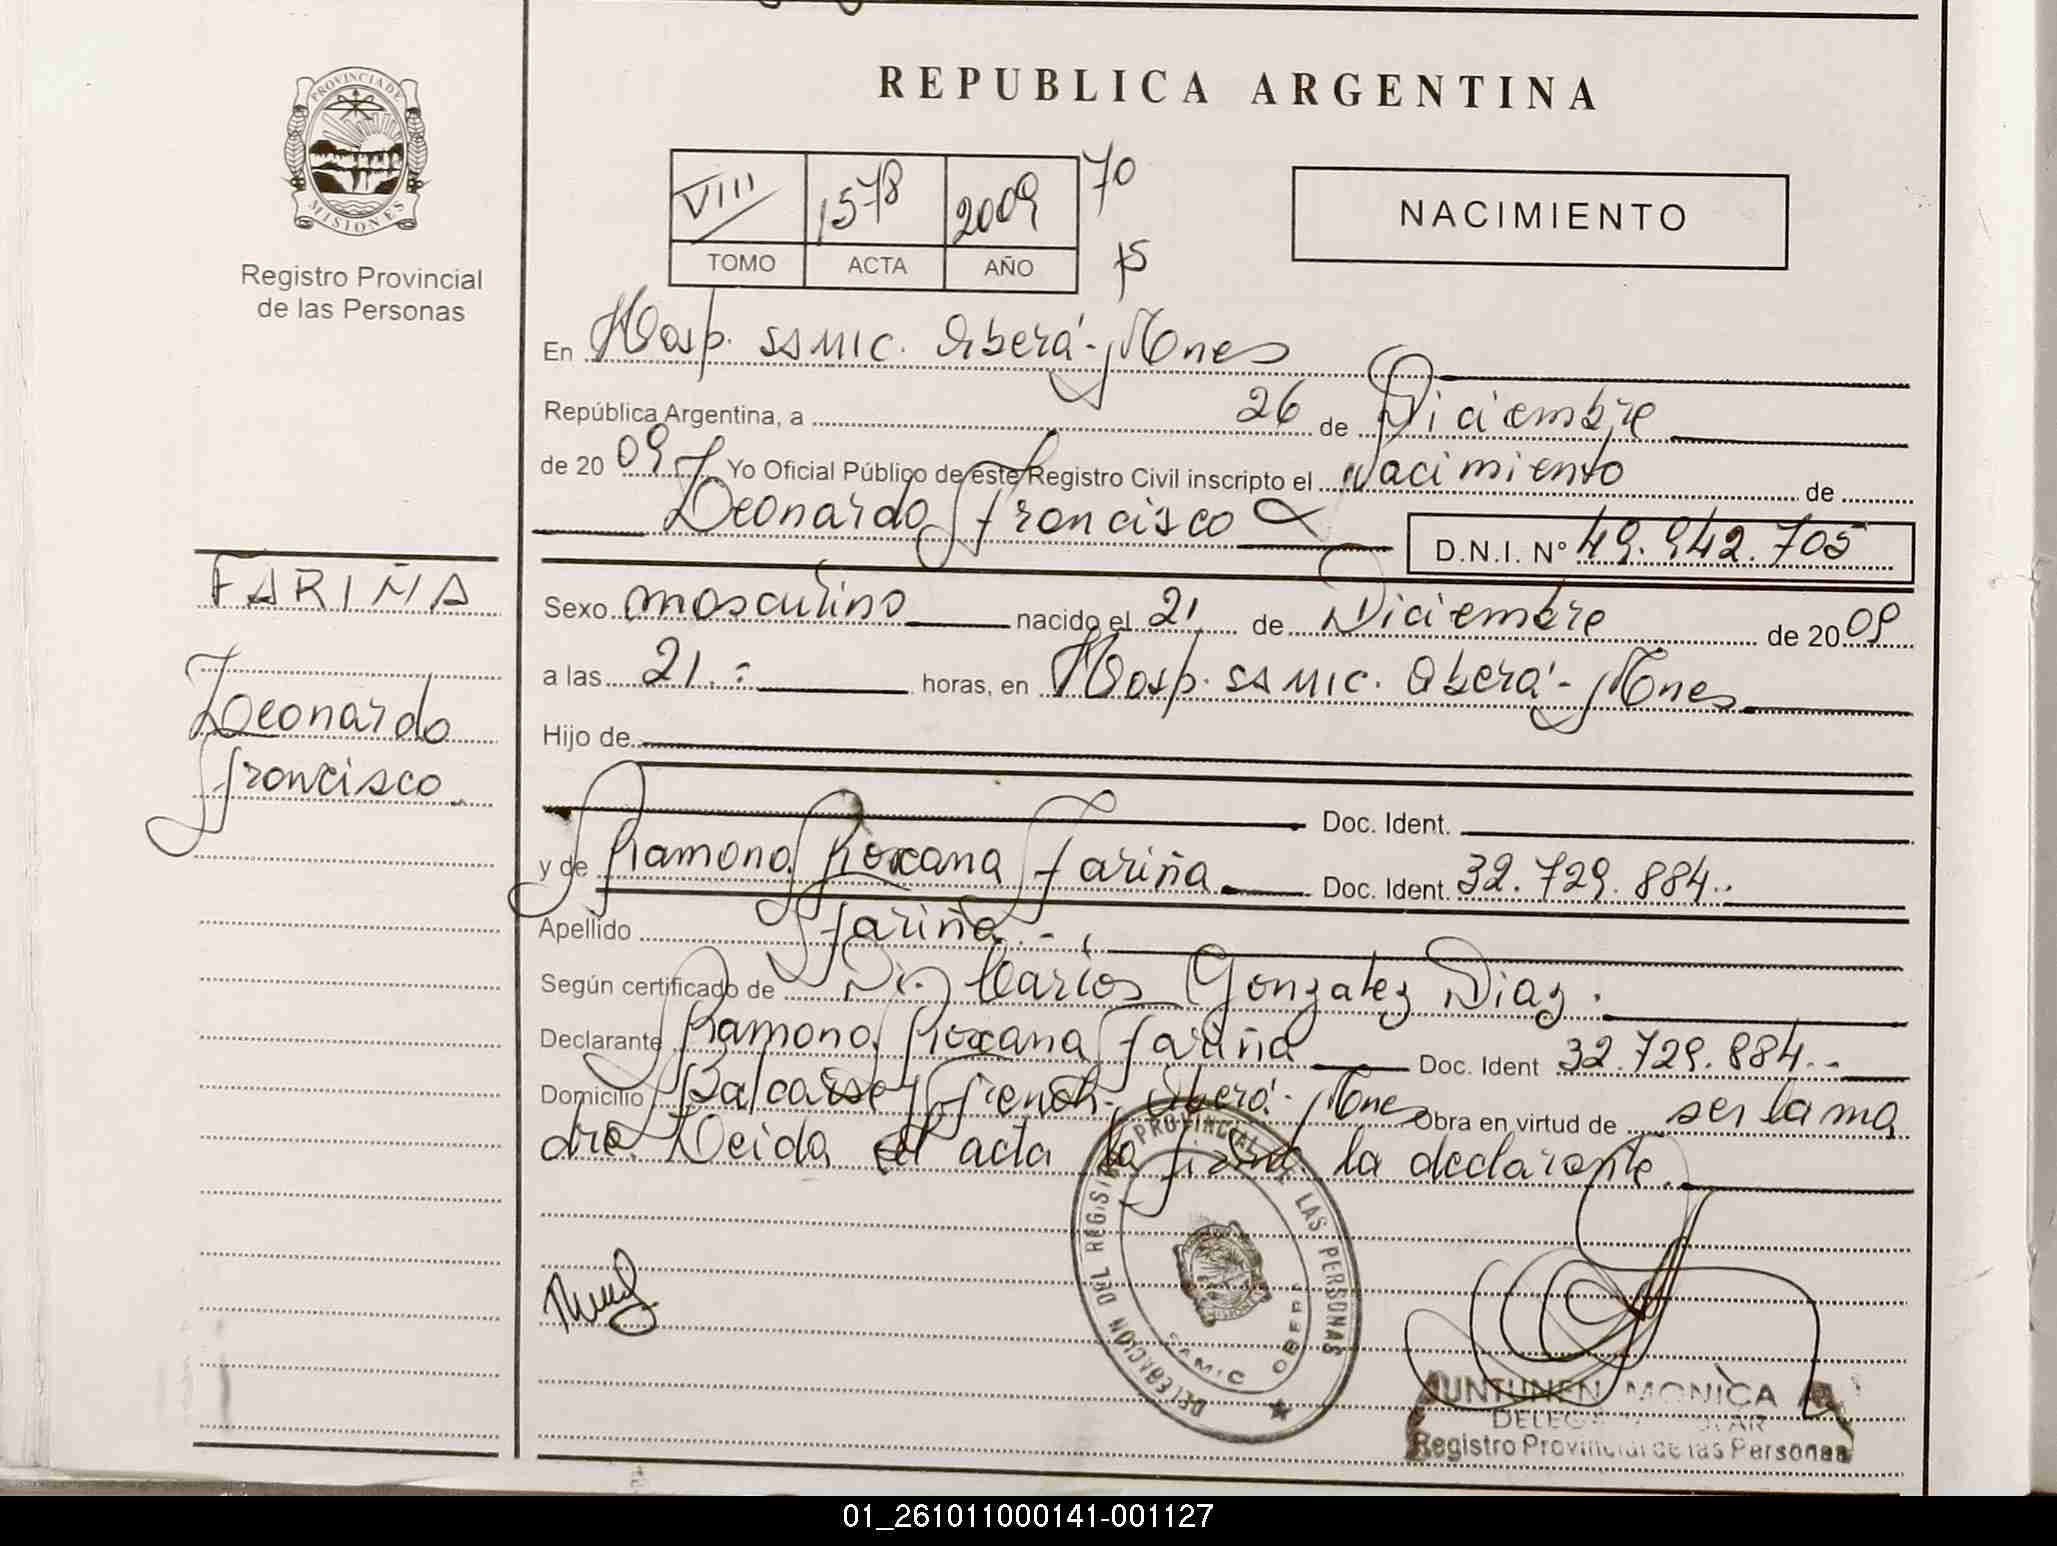 REPUBLICA ARGENTINA
PROVINCIA DE
MISIONES
Registro Provincial
de las Personas
VIII 1578 2009 70
TOMO ACTA AÑO 15
NACIMIENTO
En Hosp. SAMIC. Oberá - Mnes
República Argentina, a 26 de Diciembre
de 2009 Yo Oficial Público de este Registro Civil inscripto el Nacimiento de
Leonardo Francisco D.N.I. Nº 49.942.705
FARIÑA
Leonardo
Francisco.
Sexo masculino nacido el 21 de Diciembre de 2009
a las 21.: horas, en Hosp. SAMIC. Oberá - Mnes
Hijo de
Doc. Ident.
y de Ramona Roxana Fariña Doc. Ident. 32.729.884.
Apellido Fariña.-
Según certificado de Dr. Carlos Gonzalez Diaz.
Declarante Ramona Roxana Fariña Doc. Ident 32.729.884.-
Domicilio Balcarse y French - Oberá - Mnes Obra en virtud de ser la ma
dre. Leida el acta la firma la declarante.
DELEGACION DEL REGISTRO PROVINCIAL DE LAS PERSONAS
SAMIC OBERA
JUNTUNEN MONICA
Registro Provincial de las Personas
01_261011000141-001127